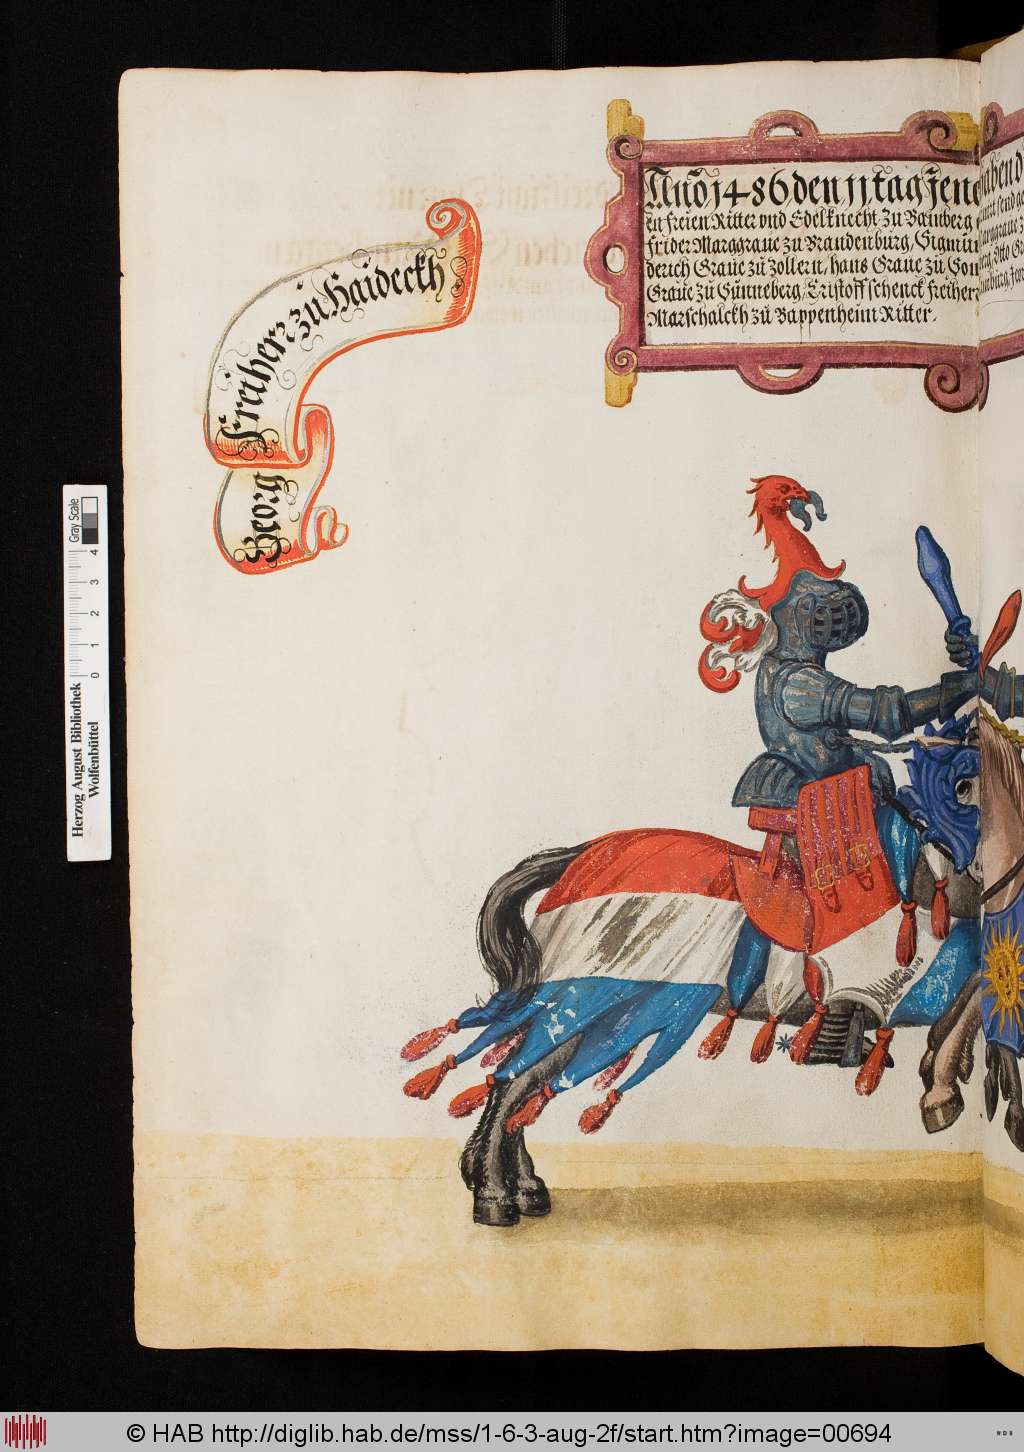 Georg Freiherr zu Haideckh
Anno 1486 den 11 tag Jene
en freien Ritter vnd Edelknecht zu Bamberg
Frider Marggraue zu Brandenburg, Sigmun
derich Graue zu Zollern, hans Graue zu Son
Graue zu Hunneberg, Cristoff schenck freiherr
Marschalckh zu Bappenheim Ritter.
Gray Scale
0 1 2 3 4
Herzog August Bibliothek
Wolfenbüttel
© HAB http://diglib.hab.de/mss/1-6-3-aug-2f/start.htm?image=00694